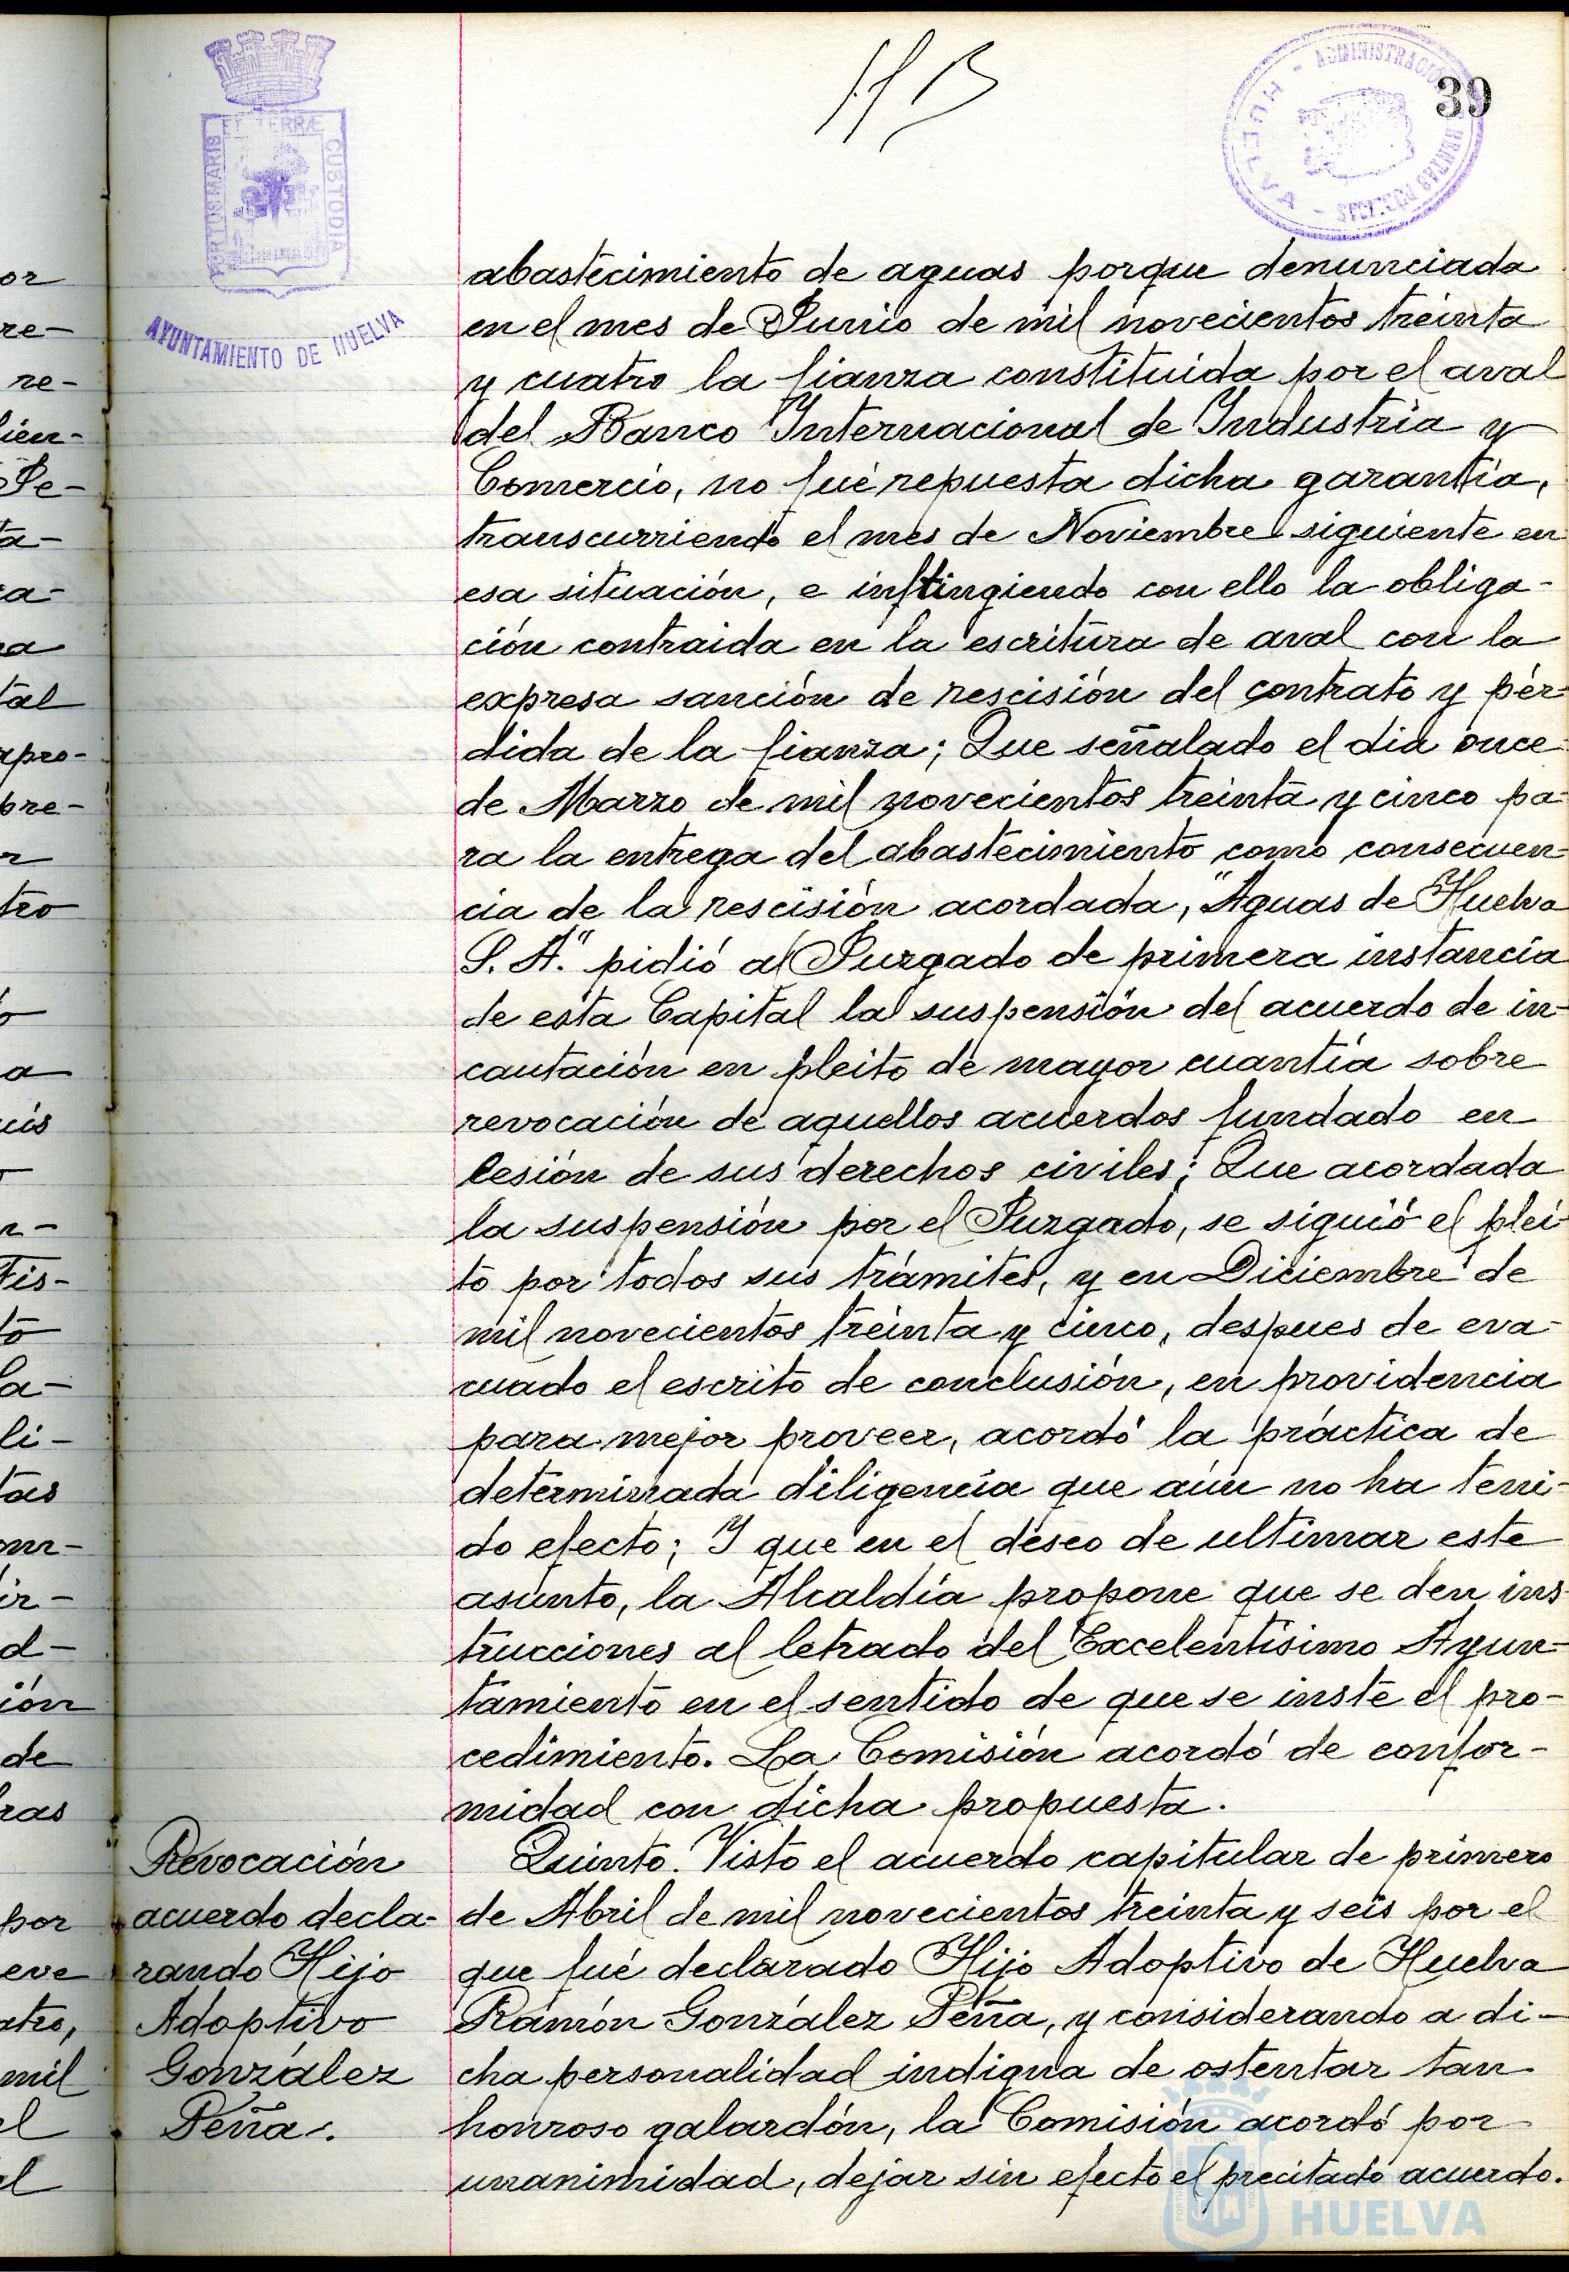 39
PORTUS MARIS
ET TERRÆ
CUSTODIA
AYUNTAMIENTO DE HUELVA
HUELVA - ADMINISTRACIÓN
RENTAS
abastecimiento de aguas porque denunciada
en el mes de Junio de mil novecientos treinta
y cuatro la fianza constituida por el aval
del Banco Internacional de Industria y
Comercio, no fué repuesta dicha garantía,
transcurriendo el mes de Noviembre siguiente en
esa situación, e infringiendo con ello la obliga-
ción contraida en la escritura de aval con la
expresa sanción de rescisión del contrato y pér-
dida de la fianza; Que señalado el dia once
de Marzo de mil novecientos treinta y cinco pa-
ra la entrega del abastecimiento como consecuen-
cia de la rescisión acordada, "Aguas de Huelva
S. A." pidió al Juzgado de primera instancia
de esta Capital la suspensión del acuerdo de in-
cautación en pleito de mayor cuantía sobre
revocación de aquellos acuerdos fundado en
lesión de sus derechos civiles; Que acordada
la suspensión por el Juzgado, se siguió el plei-
to por todos sus trámites, y en Diciembre de
mil novecientos treinta y cinco, despues de eva-
cuado el escrito de conclusión, en providencia
para mejor proveer, acordó la práctica de
determinada diligencia que aún no ha teni-
do efecto; Y que en el deseo de ultimar este
asunto, la Alcaldía propone que se den ins-
trucciones al letrado del Excelentísimo Ayun-
tamiento en el sentido de que se inste el pro-
cedimiento. La Comisión acordó de confor-
midad con dicha propuesta.
Revocación
acuerdo decla-
rando Hijo
Adoptivo
González
Peña.
Quinto. Visto el acuerdo capitular de primero
de Abril de mil novecientos treinta y seis por el
que fué declarado Hijo Adoptivo de Huelva
Ramón González Peña, y considerando a di-
cha personalidad indigna de ostentar tan
honroso galardón, la Comisión acordó por
unanimidad, dejar sin efecto el precitado acuerdo.
HUELVA